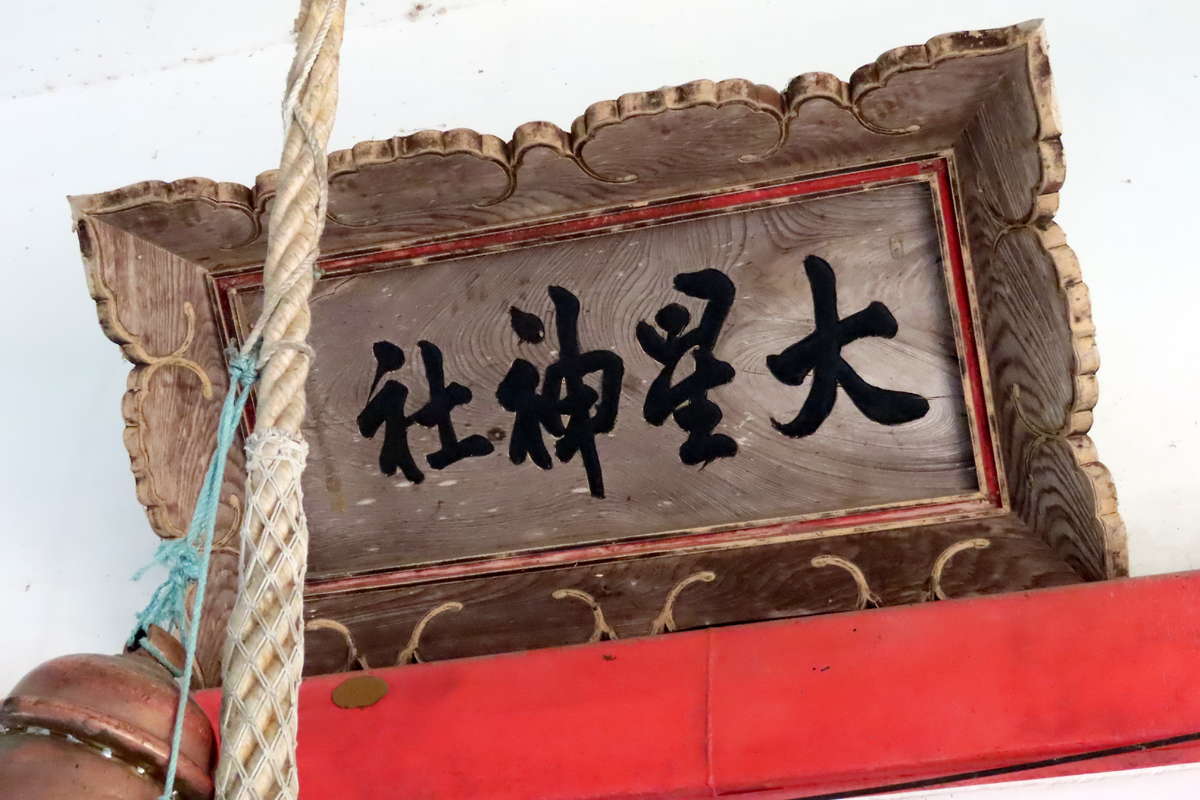 大星神社